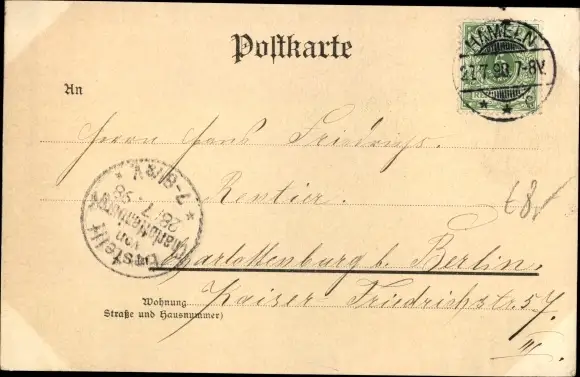 Postkarte
HAMELN
27.7.98.7-8V.
An
Herrn Hans Friedrichs.
Rentier.
Charlottenburg b. Berlin.
Wohnung
Straße und Hausnummer)
Kaiser Friedrichstr. 57.
III.
Bestellt
von
Charlottenburg
28.7. 98
7-8¼V.